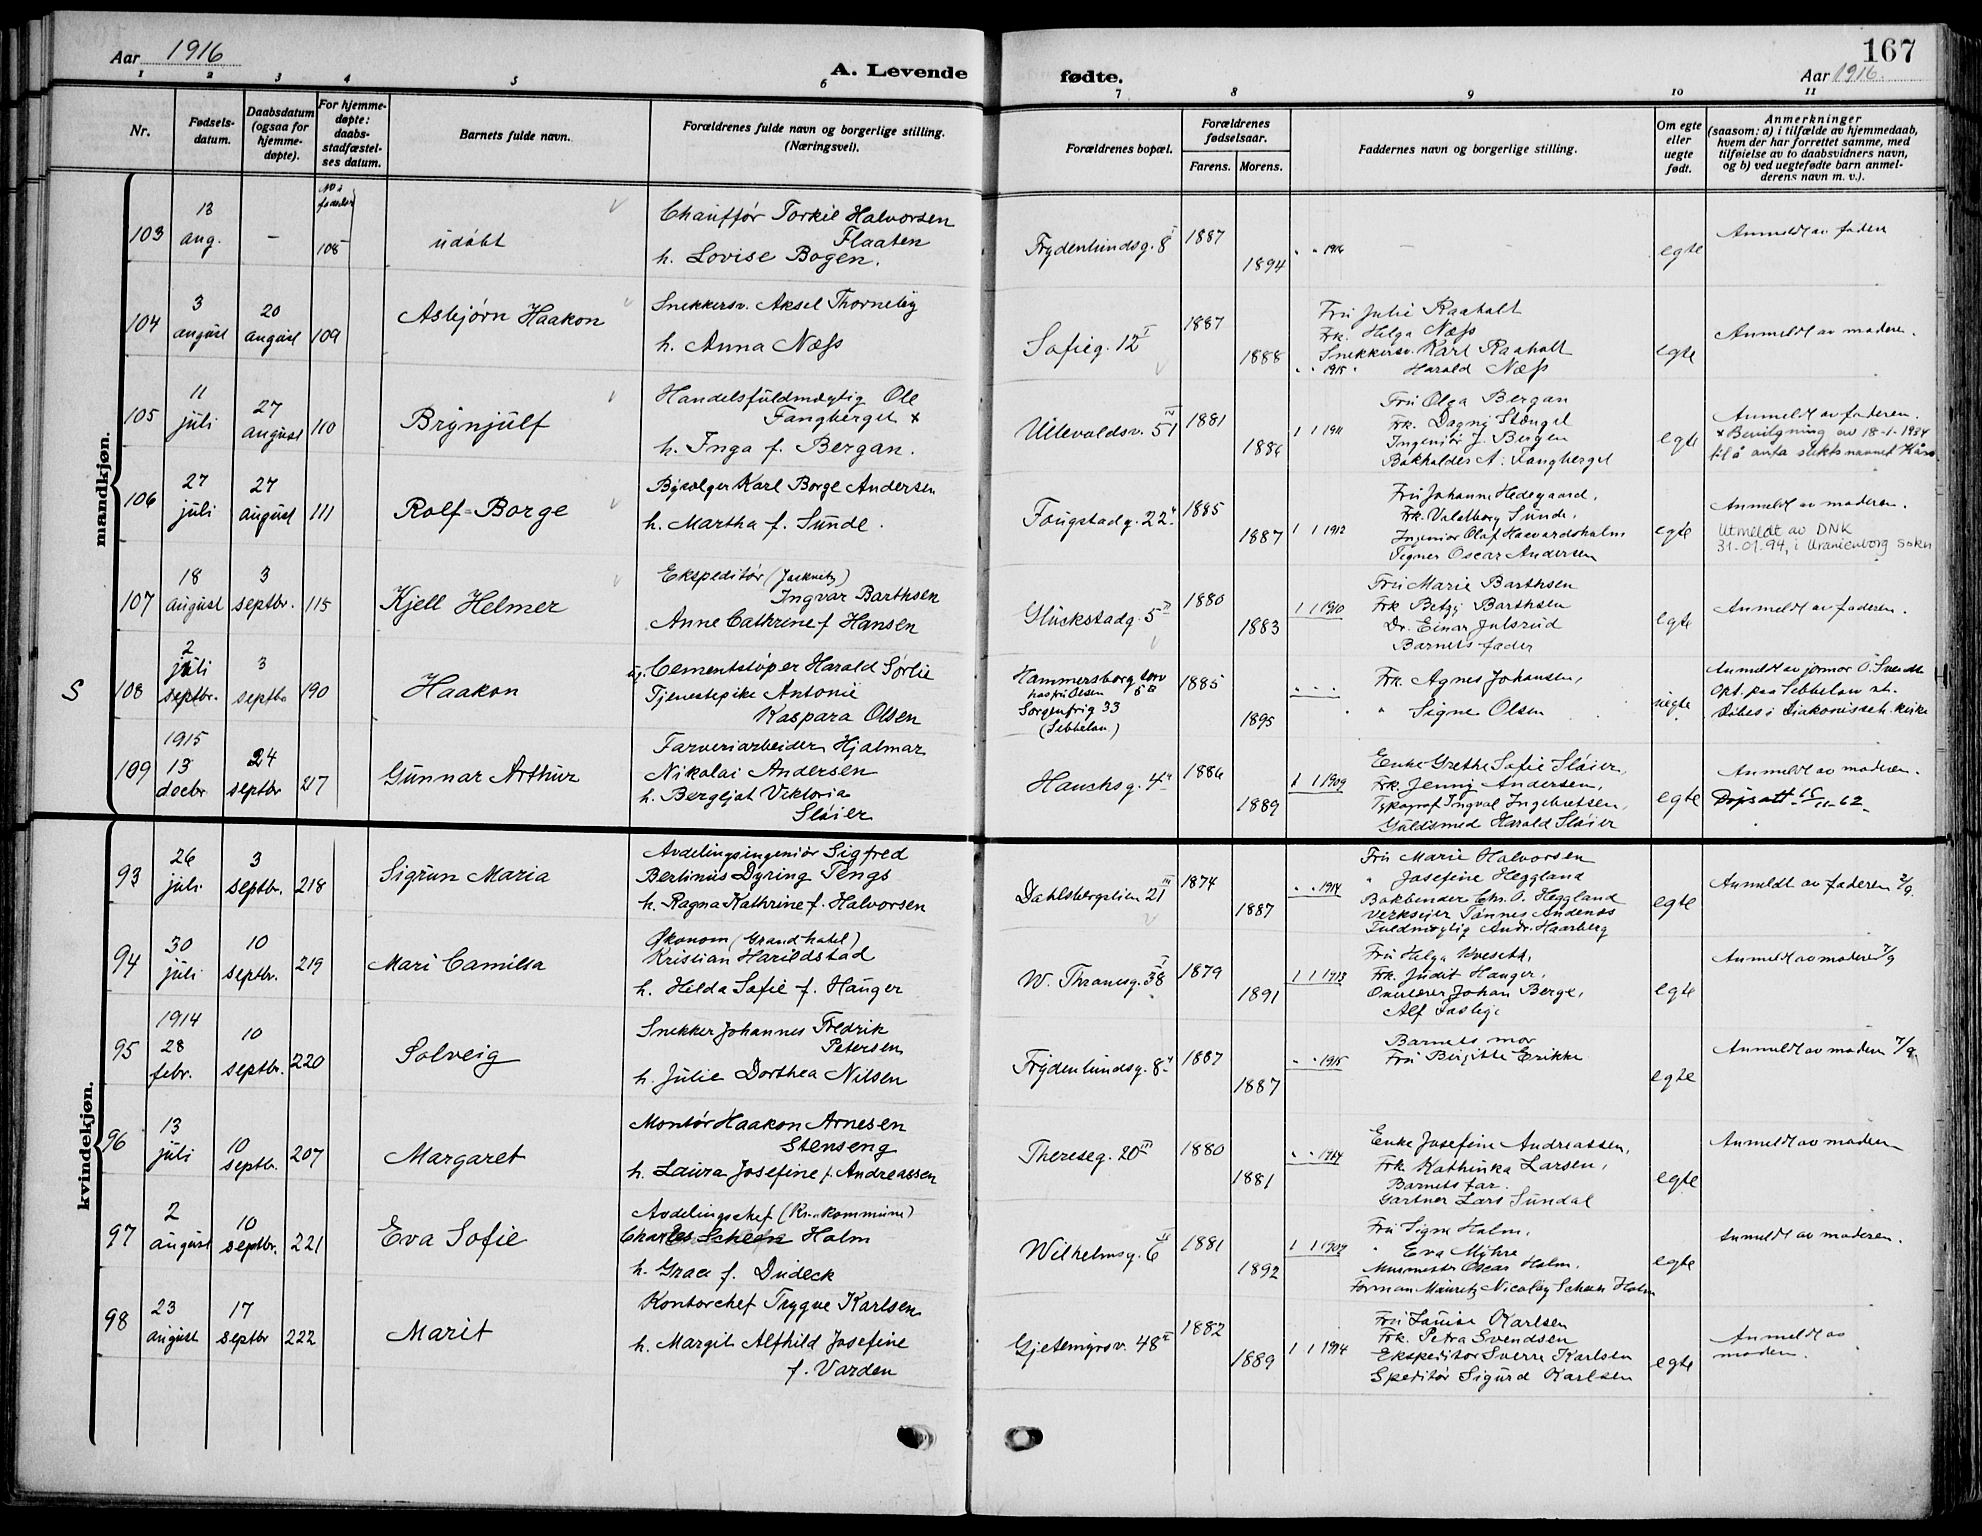 Aar 1916
A. Levende
fødte.
167
Aar 1916.
1 2 3 4 5 6 7 8 9 10 11
Nr.
Fødsels-
datum.
Daabsdatum
(ogsaa for
hjemme-
døpte).
For hjemme-
døpte:
daabs-
stadfæstel-
ses datum.
Barnets fulde navn.
Forældrenes fulde navn og borgerlige stilling.
(Næringsvei).
Forældrenes bopæl.
Forældrenes
fødselsaar.
Farens. Morens.
Faddernes navn og borgerlige stilling.
Om egte
eller
uegte
født.
Anmerkninger
(saasom: a) i tilfælde av hjemmedaab,
hvem der har forrettet samme, med
tilføielse av to daabsvidners navn,
og b) ved uegtefødte barn anmel-
derens navn m. v.).
mandkjøn.
103
13
aug.
–
108
udøbt
Chauffør Torkil Halvorsen
Flaaten
h. Lovise Bogen.
Frydenlundsg. 8 I
1887
1894
" " 1916
– –
egte
Anmeldt av faderen
104
3
august
20
august
109
Asbjørn Haakon
Snekkersv. Aksel Thorneby
h. Anna Næss
Sofieg. 12 I
1887
1888
Fru Julie Raaholt
Frk. Helga Næss
Snekkersv. Karl Raaholt
" " 1915 " Harald Næss
egte
Anmeldt av moderen.
105
11
juli
27
august
110
Brynjulf
Handelsfuldmægtig Ole
Fangberget x
h. Inga f. Bergan.
Ullevoldsv. 51 IV
1881
1886
1 1 1911
Fru Olga Bergan
Frk. Dagny Stengel
Ingeniør J. Bergen
Bokholder A. Fangberget
egte
Anmeldt av faderen.
x Bevilgning av 18-1-1934
til å anta slektsnavnet
106
27
juli
27
august
111
Rolf-Borge
Bysælger Karl Borge Andersen
h. Martha f. Sunde.
Fougstadg. 22
1885
1887
1 1 1912
Fru Johanne Hedegaard,
Frk. Valborg Sunde,
Ingeniør Olaf Haavardsholm
Tegner Oscar Andersen
egte
Anmeldt av moderen.
Utmeldt av DNK
31.01.94, i Uranienborg sokn
107
18
august
3
septbr.
115
Kjell Helmer
Ekspeditør
Ingvar Barthsen
Anne Cathrine f. Hansen
Glückstadg. 5
1880
1883
1 1 1910
Fru Marie Barthsen
Frk Betzy Barthsen
Dr. Einar Julsrud
Barnets fader
egte
Anmeldt av faderen.
S
108
2
juli
septbr.
3
septbr
190
Haakon
ug. Cementstøper Harald Sørlie
Tjenestepike Antonie
Kaspara Olsen
Hammersborg torv
hos fru Olsen 5 B
Sorgenfrig 33
(Sebbelow)
1885
1895
" " "
Frk. Agnes Johansen,
" Signe Olsen
uegte
Anmeldt av jormor
Opt. paa Sebbelow st.
Døbes i Diakonisseh. kirke
109
1915
13
decbr
24
septbr
217
Gunnar Arthur
Farveriarbeider Hjalmar
Nikolai Andersen
h. Bergljot Viktoria
Sløier
Hauchsg. 4
1886
1889
1 1 1909
Enke Grethe Sofie Sløier,
Frk. Jenny Andersen,
Typograf Ingval Ingebretsen,
Guldsmed Harald Sløier
egte
Anmeldt av moderen.
Dåpsatt. 15/11-62
kvindekjøn.
93
26
juli
3
septbr.
218
Sigrun Maria
Avdelingsingeniør Sigfred
Bertinius Dyring Tengs
h. Ragna Kathrine f. Halvorsen
Dahlsbergstien 21 III
1874
1887
" " 1914
Fru Marie Halvorsen
" Josefine Heggland
Bokbinder Chr. O. Heggland
Verkseier Tønnes Andenæs
Fuldmægtig Andr. Haarberg
egte
Anmeldt av faderen 2/9.
94
30
juli
10
septbr.
219
Mari Camilla
Økonom (Grand hotel)
Kristian Harildstad
h. Helda Sofie f. Hauger
W. Thranesg. 38 I
1879
1891
1 1 1913
Fru Helga Kveseth,
Frk. Judit Hauger,
Overlærer Johan Berge,
Alf Faslie
egte
Anmeldt av moderen 7/9
95
1914
28
febr.
10
septbr.
220
Solveig
Snekker Johannes Fredrik
Petersen
h. Julie Dorthea Nilsen
Frydenlundsg. 8
1887
1887
" " 1915
Barnets mor
Fru Birgitte Erikke
egte
Anmeldt av moderen 7/9
96
13
juli
10
septbr.
207
Margaret
Montør Haakon Arnesen
Stenseng
h. Laura Josefine f. Andreassen
Thereseg. 20 III
1880
1881
" " 1914
Enke Josefine Andreassen,
Frk. Kathinka Larsen,
Barnets far.
Gartner Lars Sundal
egte
Anmeldt av moderen
97
2
august
10
septbr.
221
Eva Sofie
Avdelingschef (Kr.a kommune)
Charles Scheen Holm
h. Grace f. Dudeck
Wilhelmsg. 6 II
1881
1892
1 1 1909
Fru Signe Holm,
" Eva Myhre
Murmester Oscar Holm,
Forman Mauritz Nicolay Scheen Holm
egte
Anmeldt av moderen.
98
23
august
17
septbr
222
Marit
Kontorchef Trygve Karlsen
h. Margit Alfhild Josefine
f. Varden
Gjetemyrsv. 48 II
1882
1889
1 1 1914
Fru Louise Karlsen
Frk. Petra Svendsen
Ekspeditør Sverre Karlsen
Speditør Sigurd Karlsen
egte
Anmeldt av
moderen.